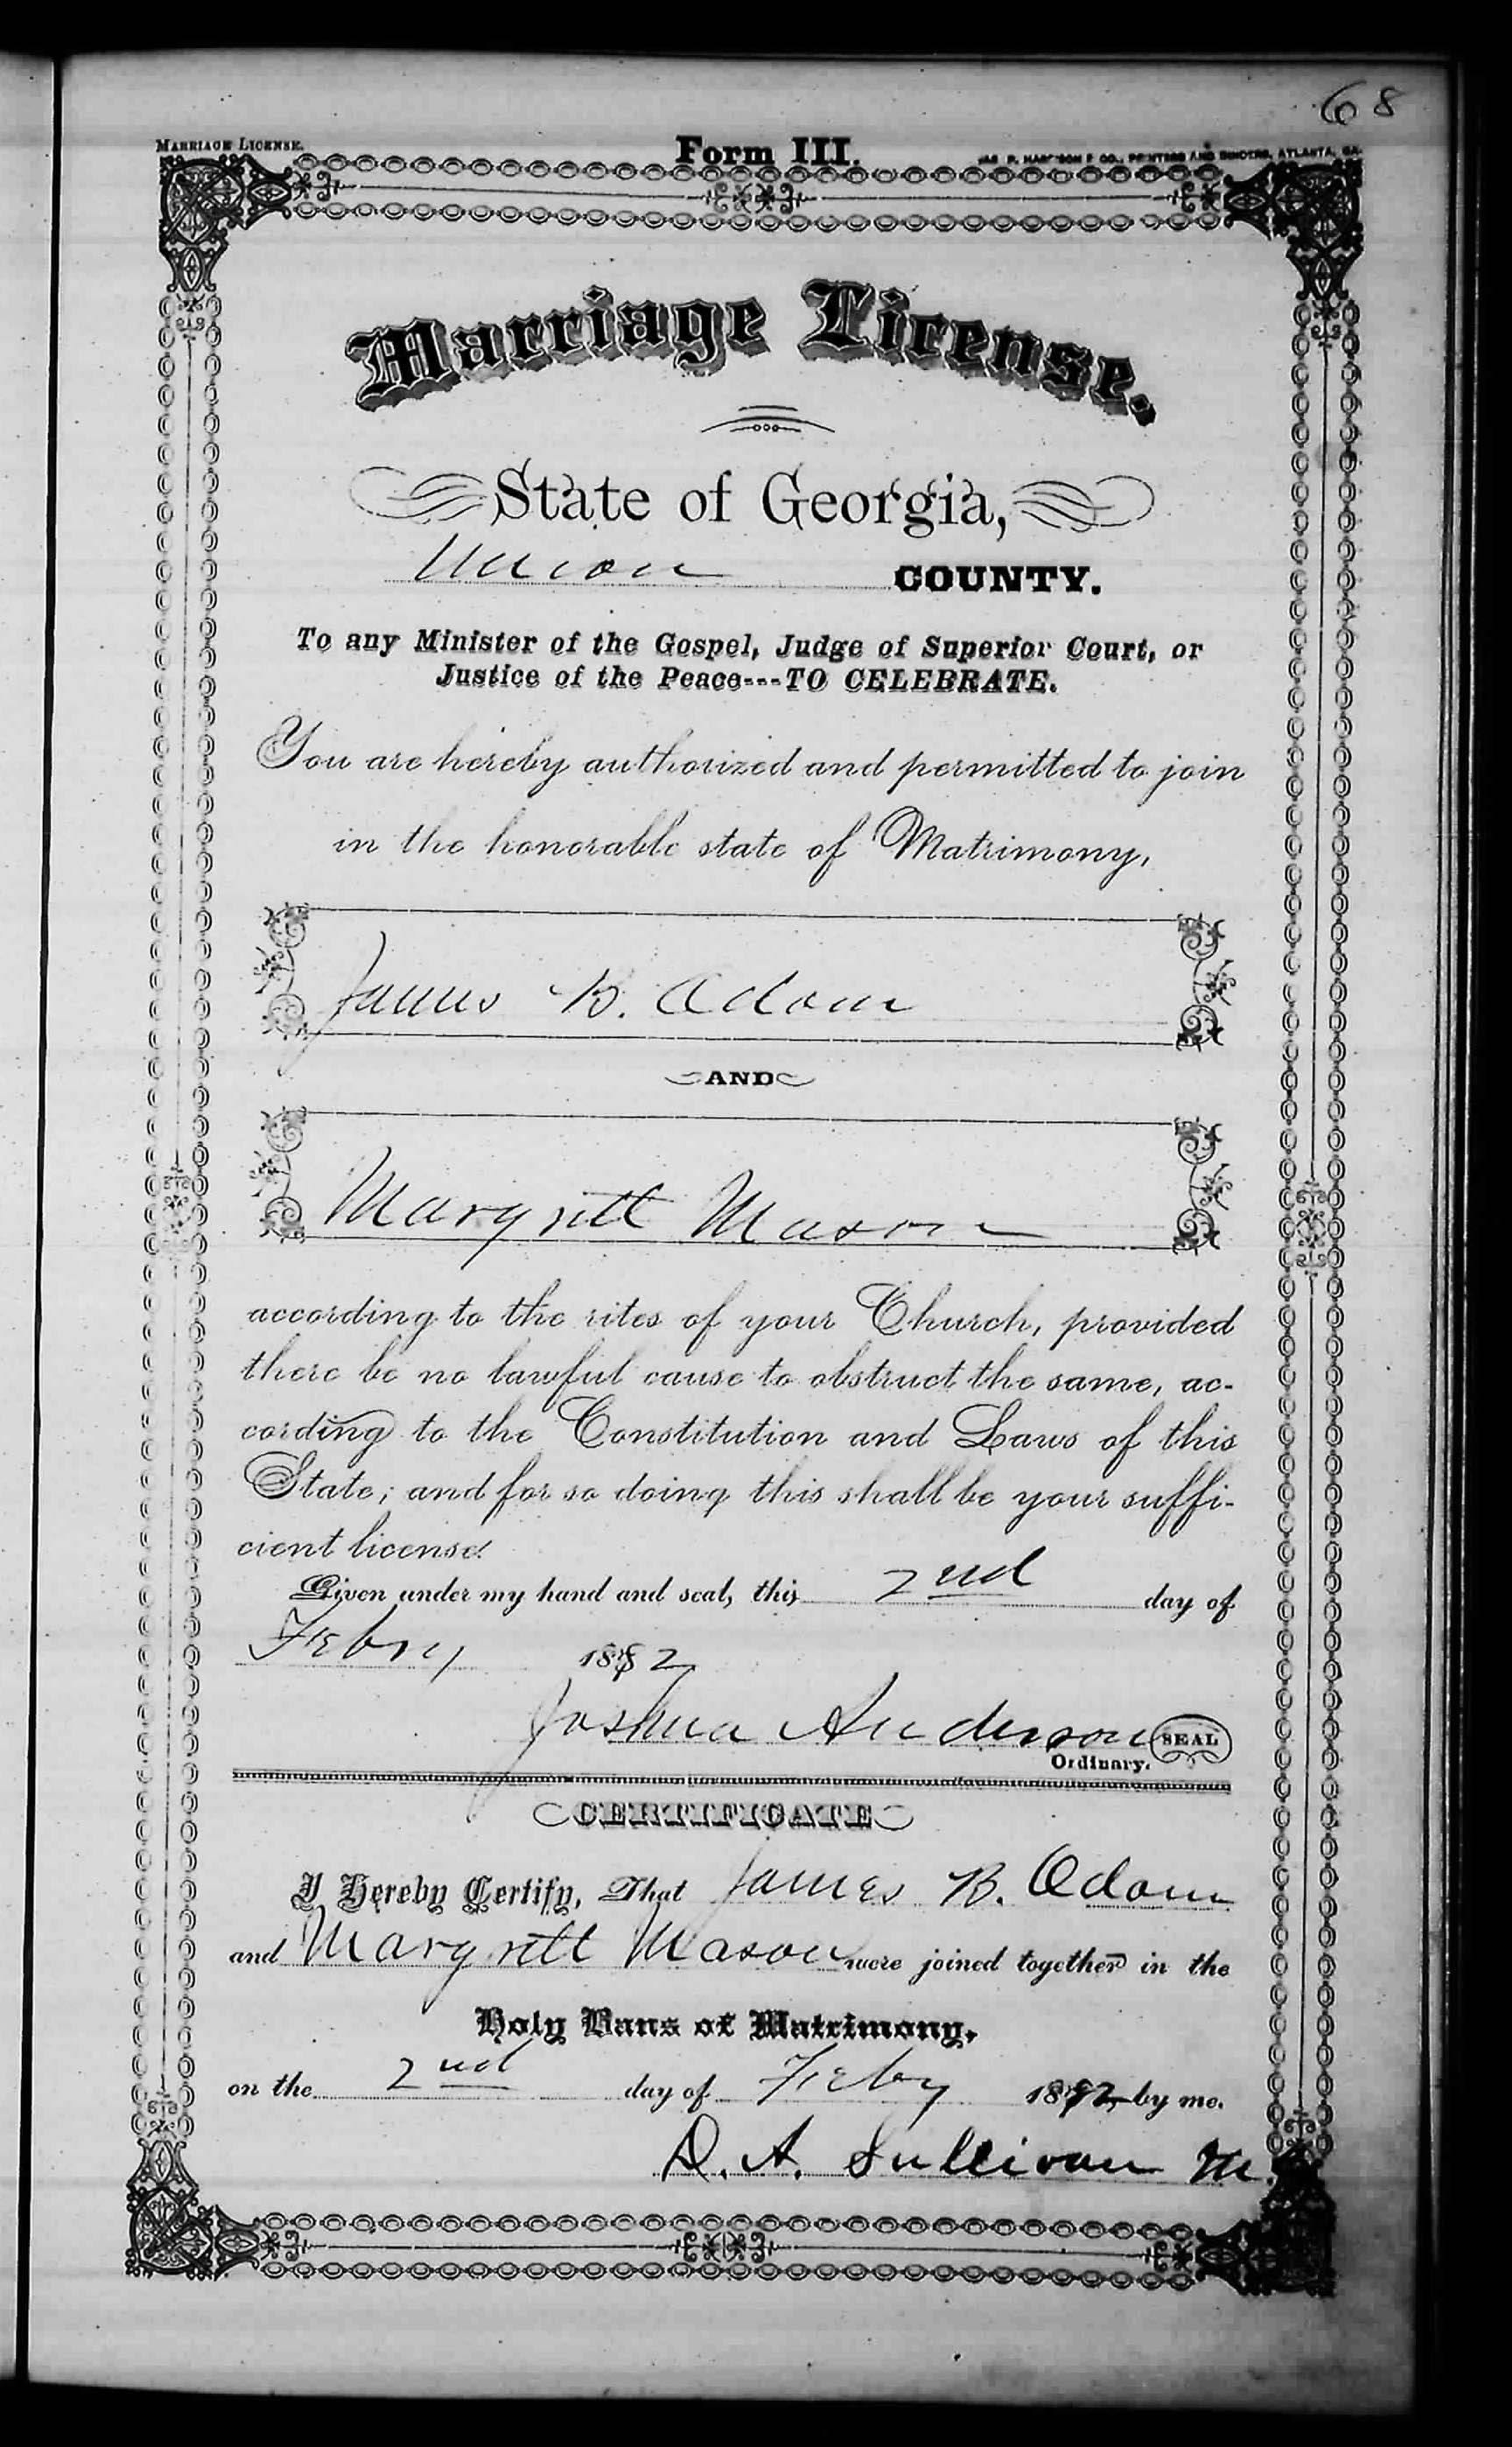 68
MARRIAGE LICENSE.
Form III.
JAS. P. HARRISON & CO., PRINTERS AND BINDERS, ATLANTA, GA.
Marriage License.
State of Georgia,
Union COUNTY.
To any Minister of the Gospel, Judge of Superior Court, or
Justice of the Peace---TO CELEBRATE.
You are hereby authorized and permitted to join
in the honorable state of Matrimony,
James B. Odom
AND
Margrett Mason
according to the rites of your Church, provided
there be no lawful cause to obstruct the same, ac-
cording to the Constitution and Laws of this
State; and for so doing this shall be your suffi-
cient license.
Given under my hand and seal, this 2nd day of
Febry 1882
Joshua Anderson SEAL
Ordinary.
CERTIFICATE
I Hereby Certify, That James B. Odom
and Margrett Mason were joined together in the
Holy Bans of Matrimony,
on the 2nd day of Feby 1882 by me.
D. A. Sullivan M.